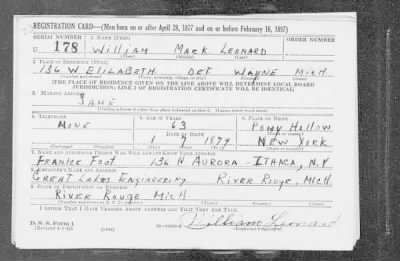 REGISTRATION CARD—(Men born on or after April 28, 1877 and on or before February 16, 1897)
SERIAL NUMBER 1. NAME (Print) ORDER NUMBER
U 178 William Mark Leonard
2. PLACE OF RESIDENCE (Print)
136 W ELIZABETH DET WAYNE MICH
[THE PLACE OF RESIDENCE GIVEN ON THE LINE ABOVE WILL DETERMINE LOCAL BOARD
JURISDICTION; LINE 2 OF REGISTRATION CERTIFICATE WILL BE IDENTICAL]
3. MAILING ADDRESS
SAME
4. TELEPHONE 5. AGE IN YEARS 6. PLACE OF BIRTH
NONE 63 PONY HOLLOW
DATE OF BIRTH
1 1879 NEW YORK
7. NAME AND ADDRESS OF PERSON WHO WILL ALWAYS KNOW YOUR ADDRESS
FRANCK FOOT 136 N AURORA - ITHACA, N.Y
8. EMPLOYER'S NAME AND ADDRESS
GREAT LAKES ENGINEERING RIVER ROUGE, MICH
9. PLACE OF EMPLOYMENT OR BUSINESS
RIVER ROUGE MICH
I AFFIRM THAT I HAVE VERIFIED ABOVE ANSWERS AND THAT THEY ARE TRUE.
D. S. S. Form 1
(Revised 4-1-42) (over)
William Leonard